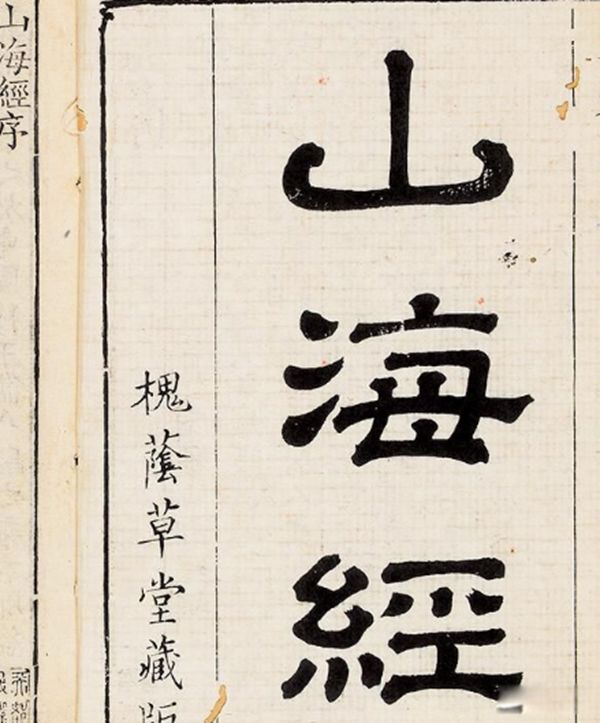 山海經
槐蔭草堂藏版
山海經序